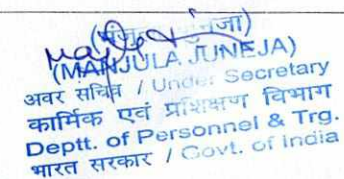 (MANJULA JUNEJA)
अवर सचिव / Under Secretary
कार्मिक एवं प्रशिक्षण विभाग
Deptt. of Personnel & Trg.
भारत सरकार / Govt. of India